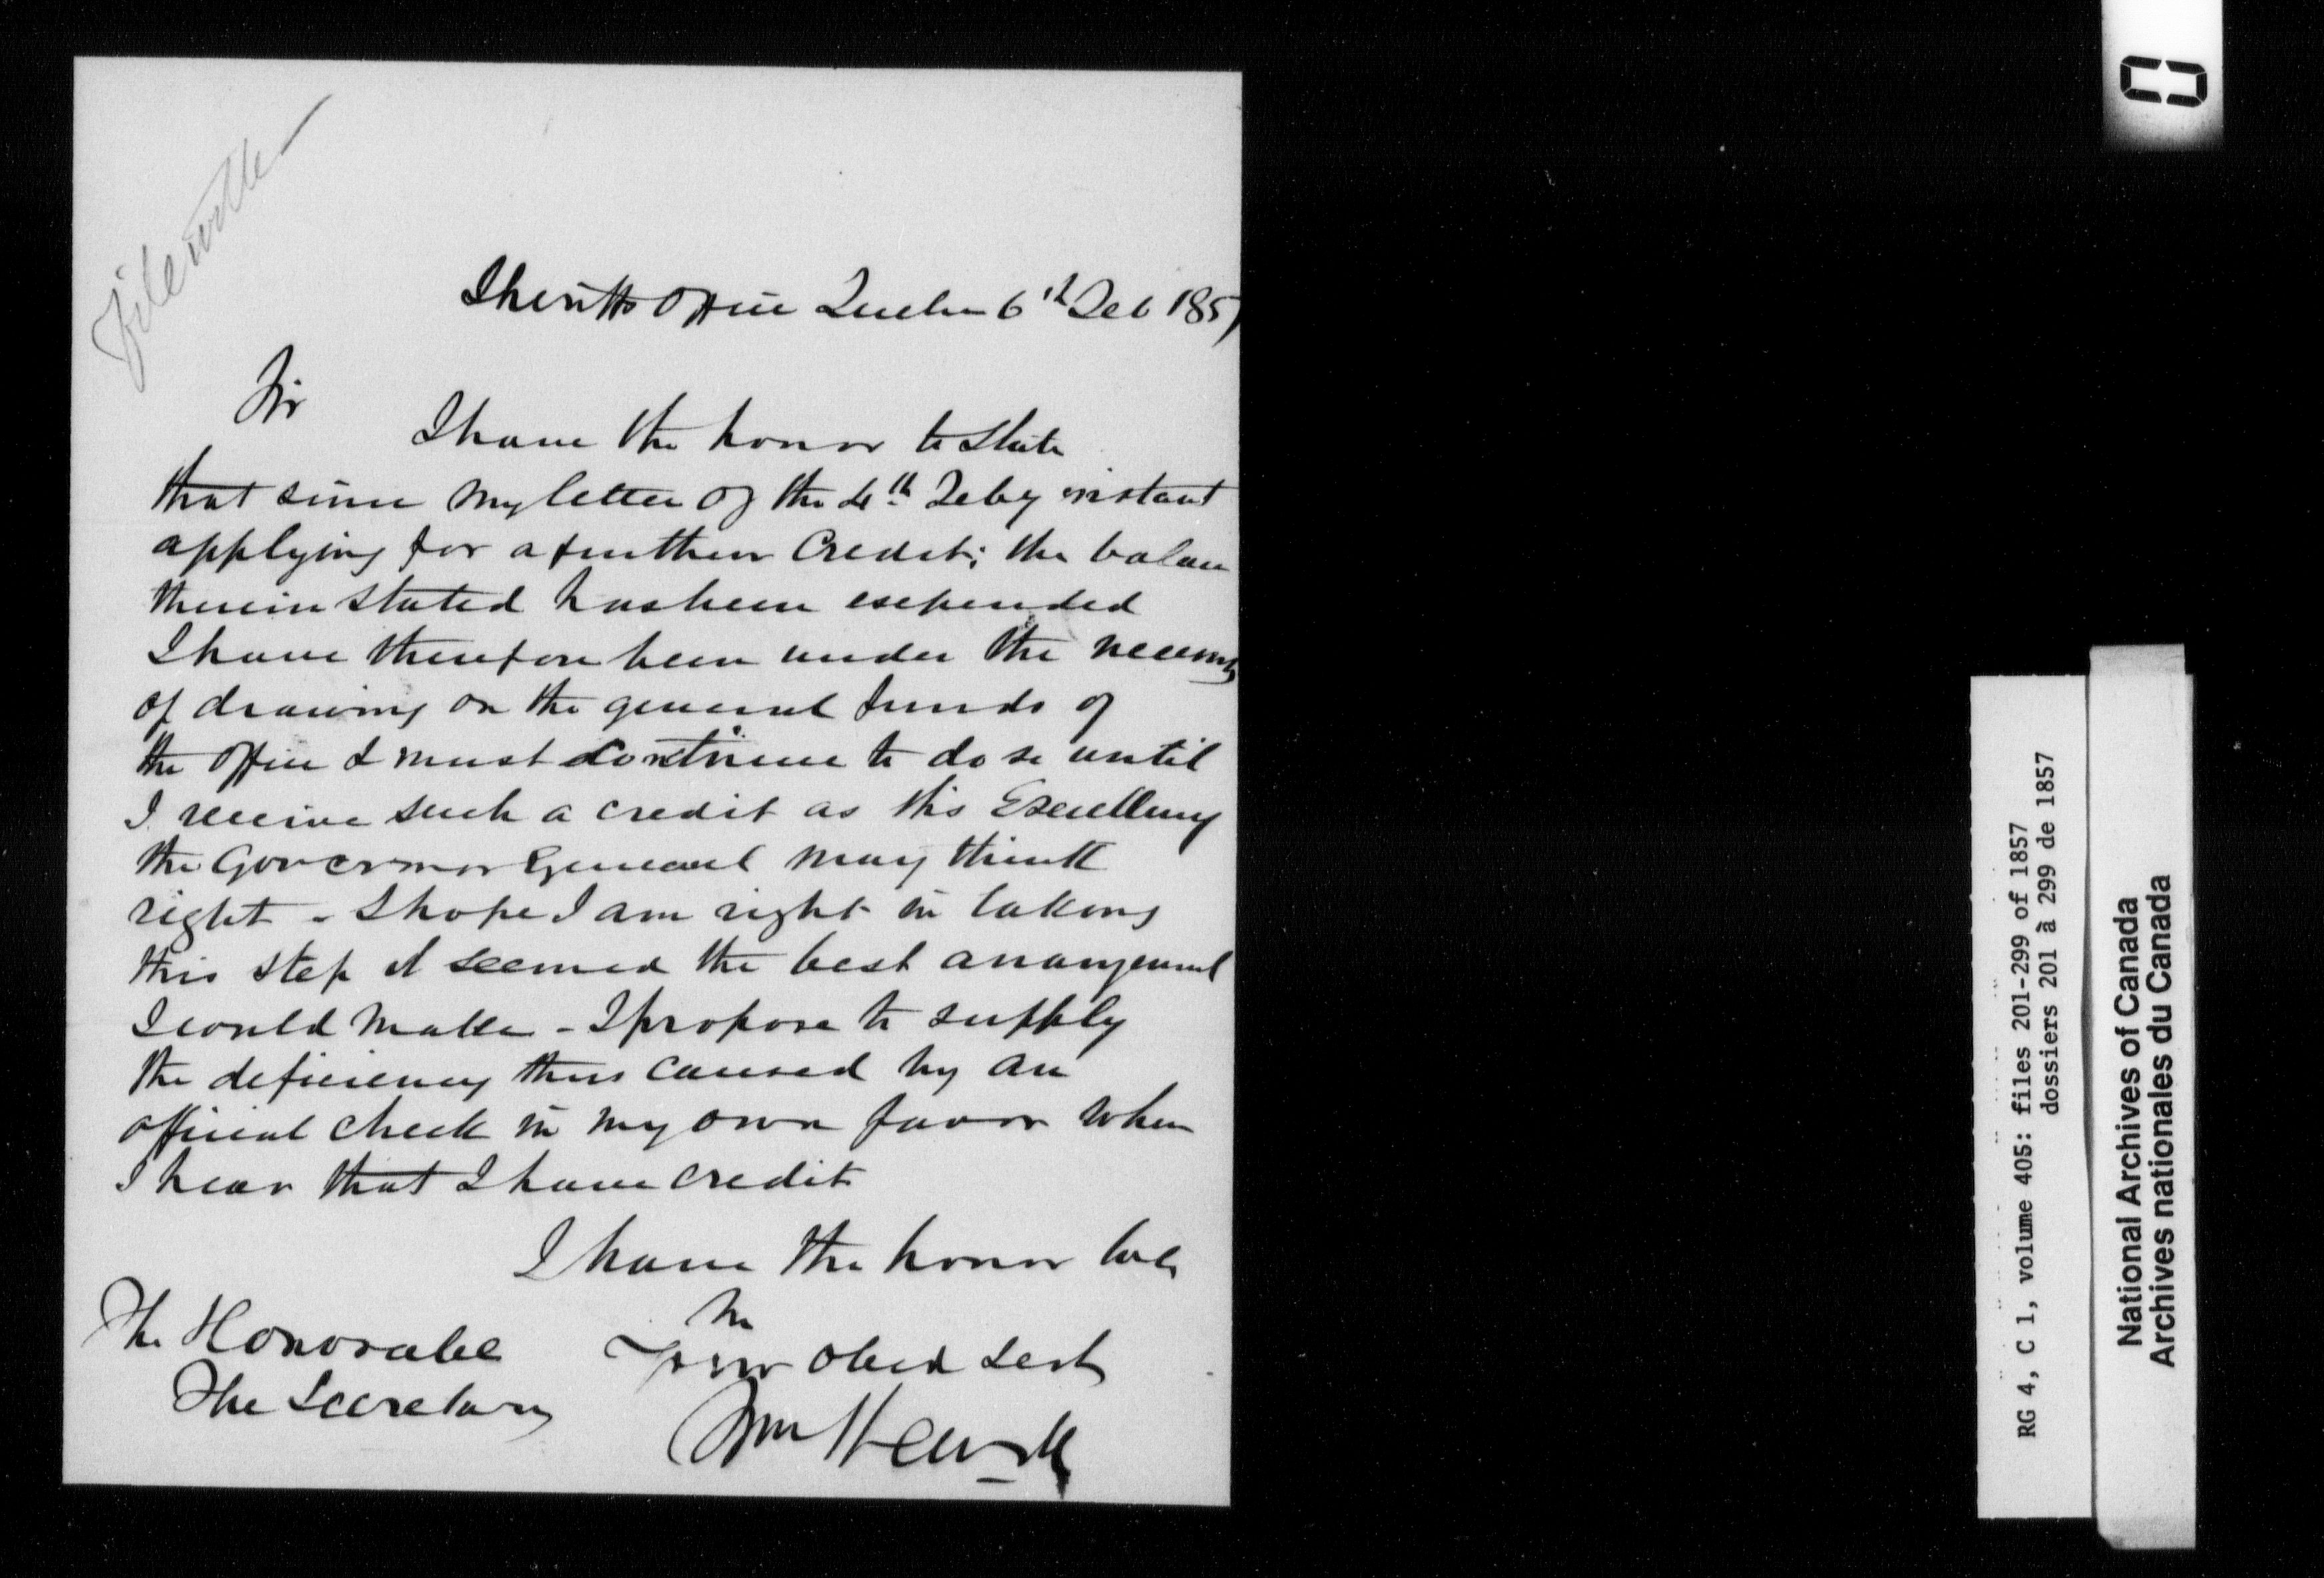 File with
Sheriffs Office Quebec 6th Feb 1857
Sir
I have the honor to state
that since my letter of the 4th Feby instant
applying for a further Credit; the balance
therein stated has been expended
I have therefore been under the necessity
of drawing on the general funds of
the Office & must continue to do so until
I receive such a credit as His Excellency
the Governor General may think
right - I hope I am right in taking
this step it seemed the best arrangement
I could make - I propose to supply
the deficiency thus caused by an
official check in my own favor when
I hear that I have credit
I have the honor to be
Sir
Your obed Servt
Wm
The Honorable
The Secretary
RG 4, C 1, volume 405: files 201-299 of 1857
dossiers 201 à 299 de 1857
National Archives of Canada
Archives nationales du Canada